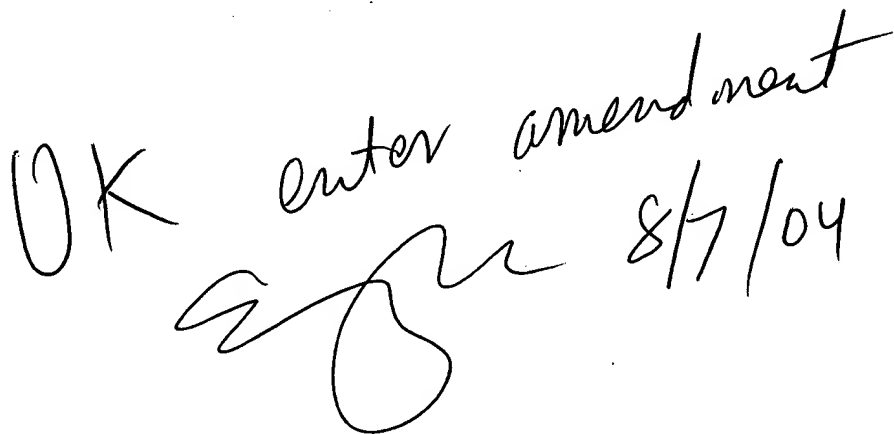 OK enter amendment
8/7/04